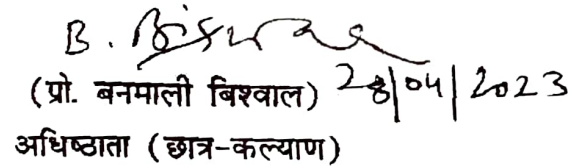 B. Biswal
(प्रो. बनमाली बिश्वाल) 28/04/2023
अधिष्ठाता (छात्र-कल्याण)